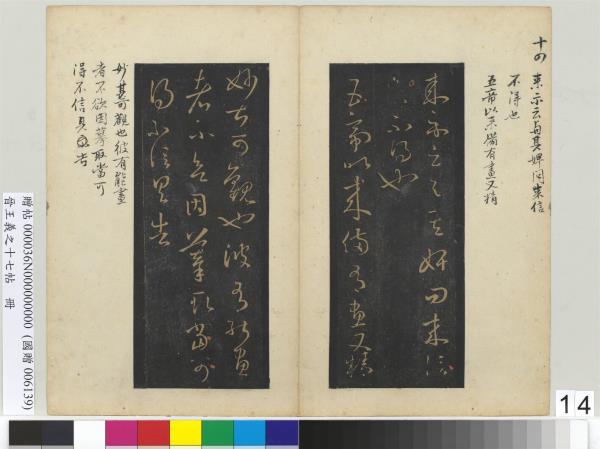 十四
来示云与其婢问来信
不得也
五帝以来备有畫又精
来示云與其婢问来信
不得也
五帝以来備有畫又精
妙甚可觀也彼有能畫
者不欲因摹取當可
得不信具告
妙甚可觀也彼有能畫
者不欲因摹取當可
得不信具告
贈帖 000036N000000000 (國贈 006139)
晉王羲之十七帖 冊
14